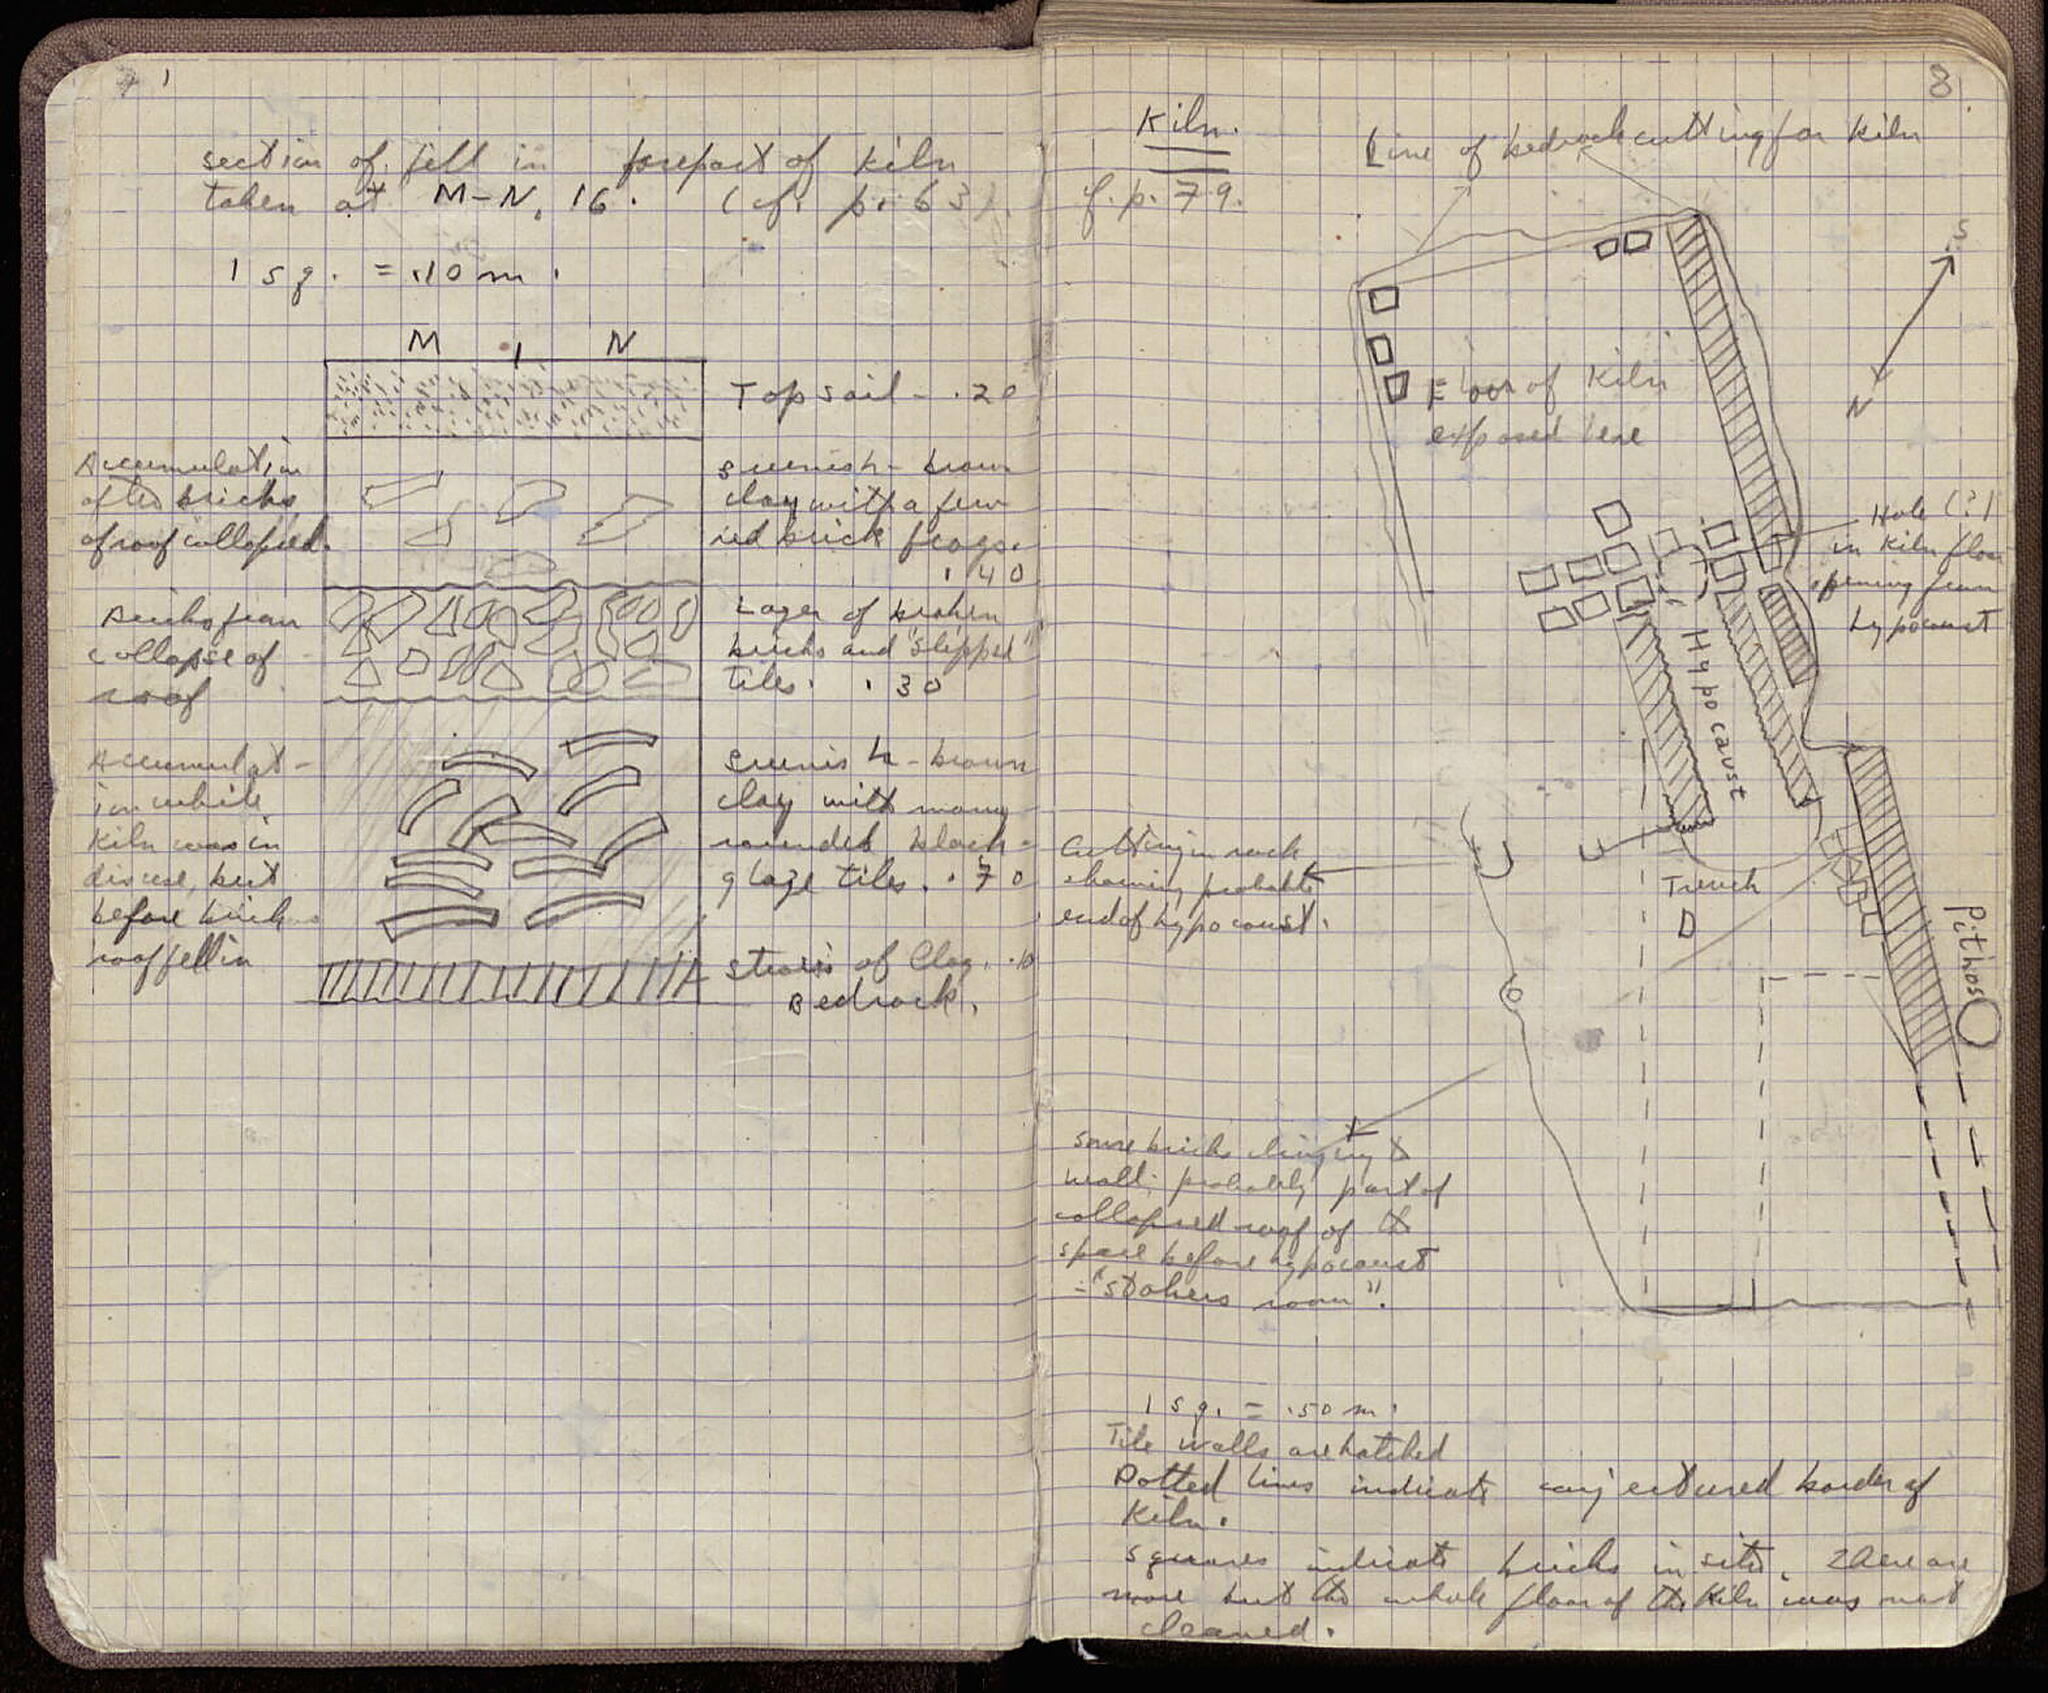 section of fill in forepart of kiln
taken at M-N, 16. (cf. p. 63)
1 sq. = .10 m.
M N
Top soil - .20
Accumulation
after bricks
of roof collapsed.
greenish-brown
clay with a few
red brick frags.
.40
Bricks from
collapse of
roof
Layer of broken
bricks and "slipped"
tiles. .30
Accumulat-
ion while
kiln was in
disuse, but
before brick
roof fell in
greenish-brown
clay with many
rounded black-
glaze tiles. .70
of Clay. .10
Bedrock.
8
Kiln.
cf. p. 79.
Line of bedrock cutting for kiln
S
N
Floor of Kiln
exposed here
Hole (?)
in kiln floor
opening from
hypocaust
Hypocaust
Cutting in rock
showing probable
end of hypocaust.
Trench
D
Pithos
Some bricks clinging to
wall; probably part of
collapsed roof of the
space before hypocaust
- "stokers room".
1 sq. = .50 m.
Tile walls are hatched
Dotted lines indicate conjectured border of
Kiln.
Squares indicate bricks in situ. There are
more but the whole floor of the kiln was not
cleaned.